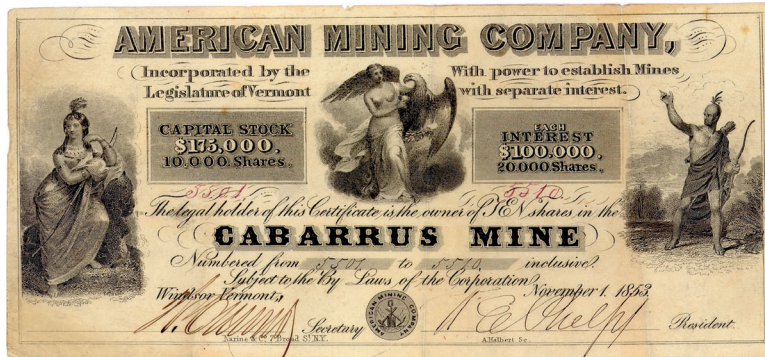 AMERICAN MINING COMPANY,
Incorporated by the
Legislature of Vermont
With power to establish Mines
with separate interest.
CAPITAL STOCK
$175,000,
10,000 Shares.
EACH
INTEREST
$100,000,
20,000 Shares.
5501
5510
The legal holder of this Certificate is the owner of TEN shares in the
CABARRUS MINE
Numbered from 5501 to 5510 inclusive.
Subject to the By Laws of the Corporation
Windsor Vermont, November 1, 1853.
Secretary
AMERICAN MINING COMPANY
President.
Narine & Co. 7 Broad St. N.Y.
A. Halbert Sc.